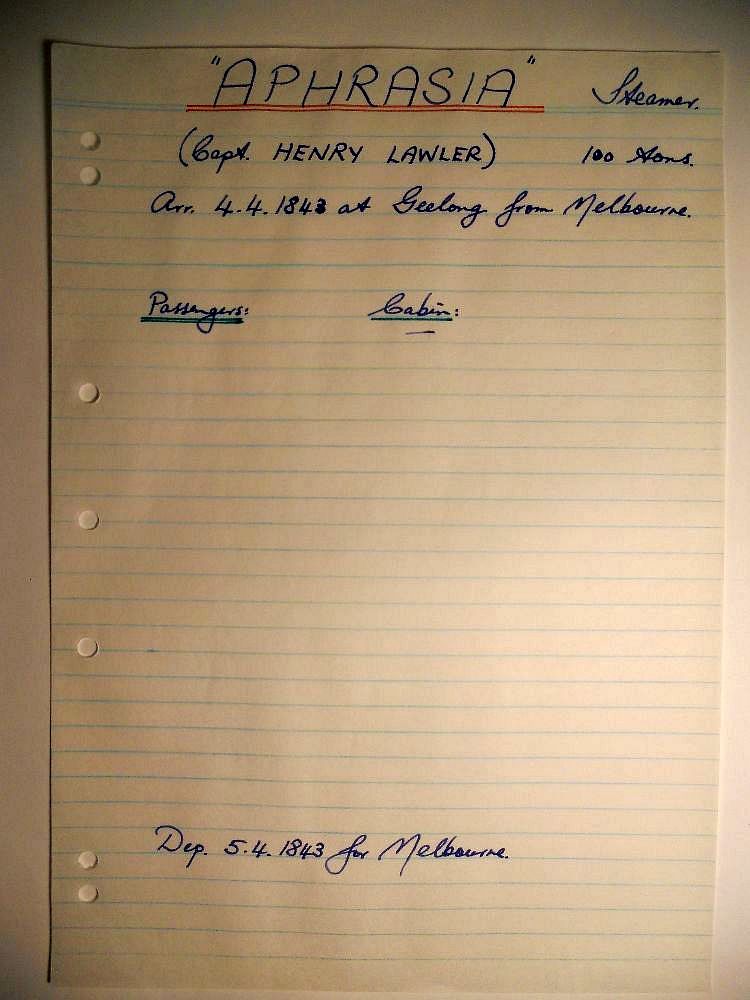 "APHRASIA" Steamer.
(Capt. HENRY LAWLER) 100 tons.
Arr. 4.4.1843 at Geelong from Melbourne.
Passengers: Cabin:
—
Dep. 5.4.1843 for Melbourne.